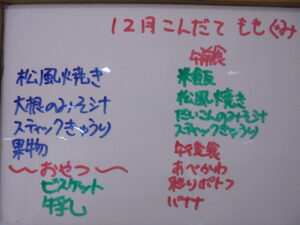 12月こんだて ももぐみ
松風焼き
大根のみそ汁
スティックきゅうり
果物
〜おやつ〜
ビスケット
牛乳
午前食
米飯
松風焼き
だいこんのみそ汁
スティックきゅうり
午後食
あべかわ
彩りポトフ
バナナ